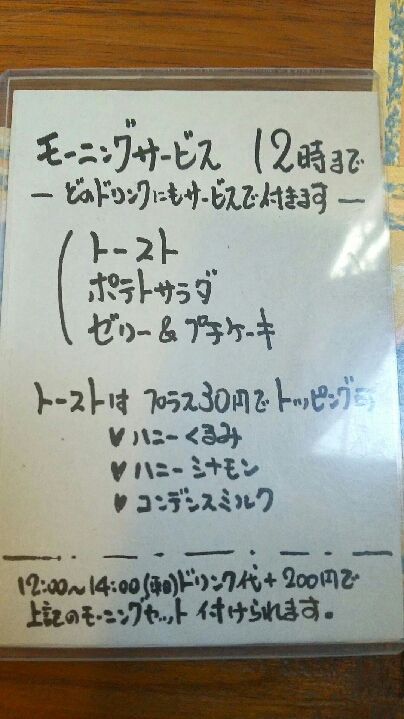 モーニングサービス 12時まで
ー どのドリンクにもサービスで付きます ー
トースト
ポテトサラダ
ゼリー&プチケーキ
トーストは プラス30円でトッピング可
♥ ハニーくるみ
♥ ハニーシナモン
♥ コンデンスミルク
12:00〜14:00(平日)ドリンク代+200円で
上記のモーニングセット付けられます。